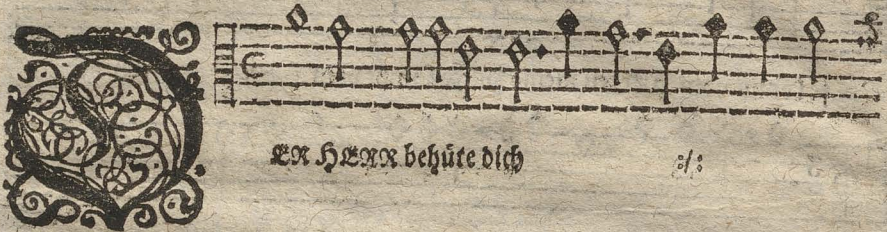 DER HERR behüte dich :/: